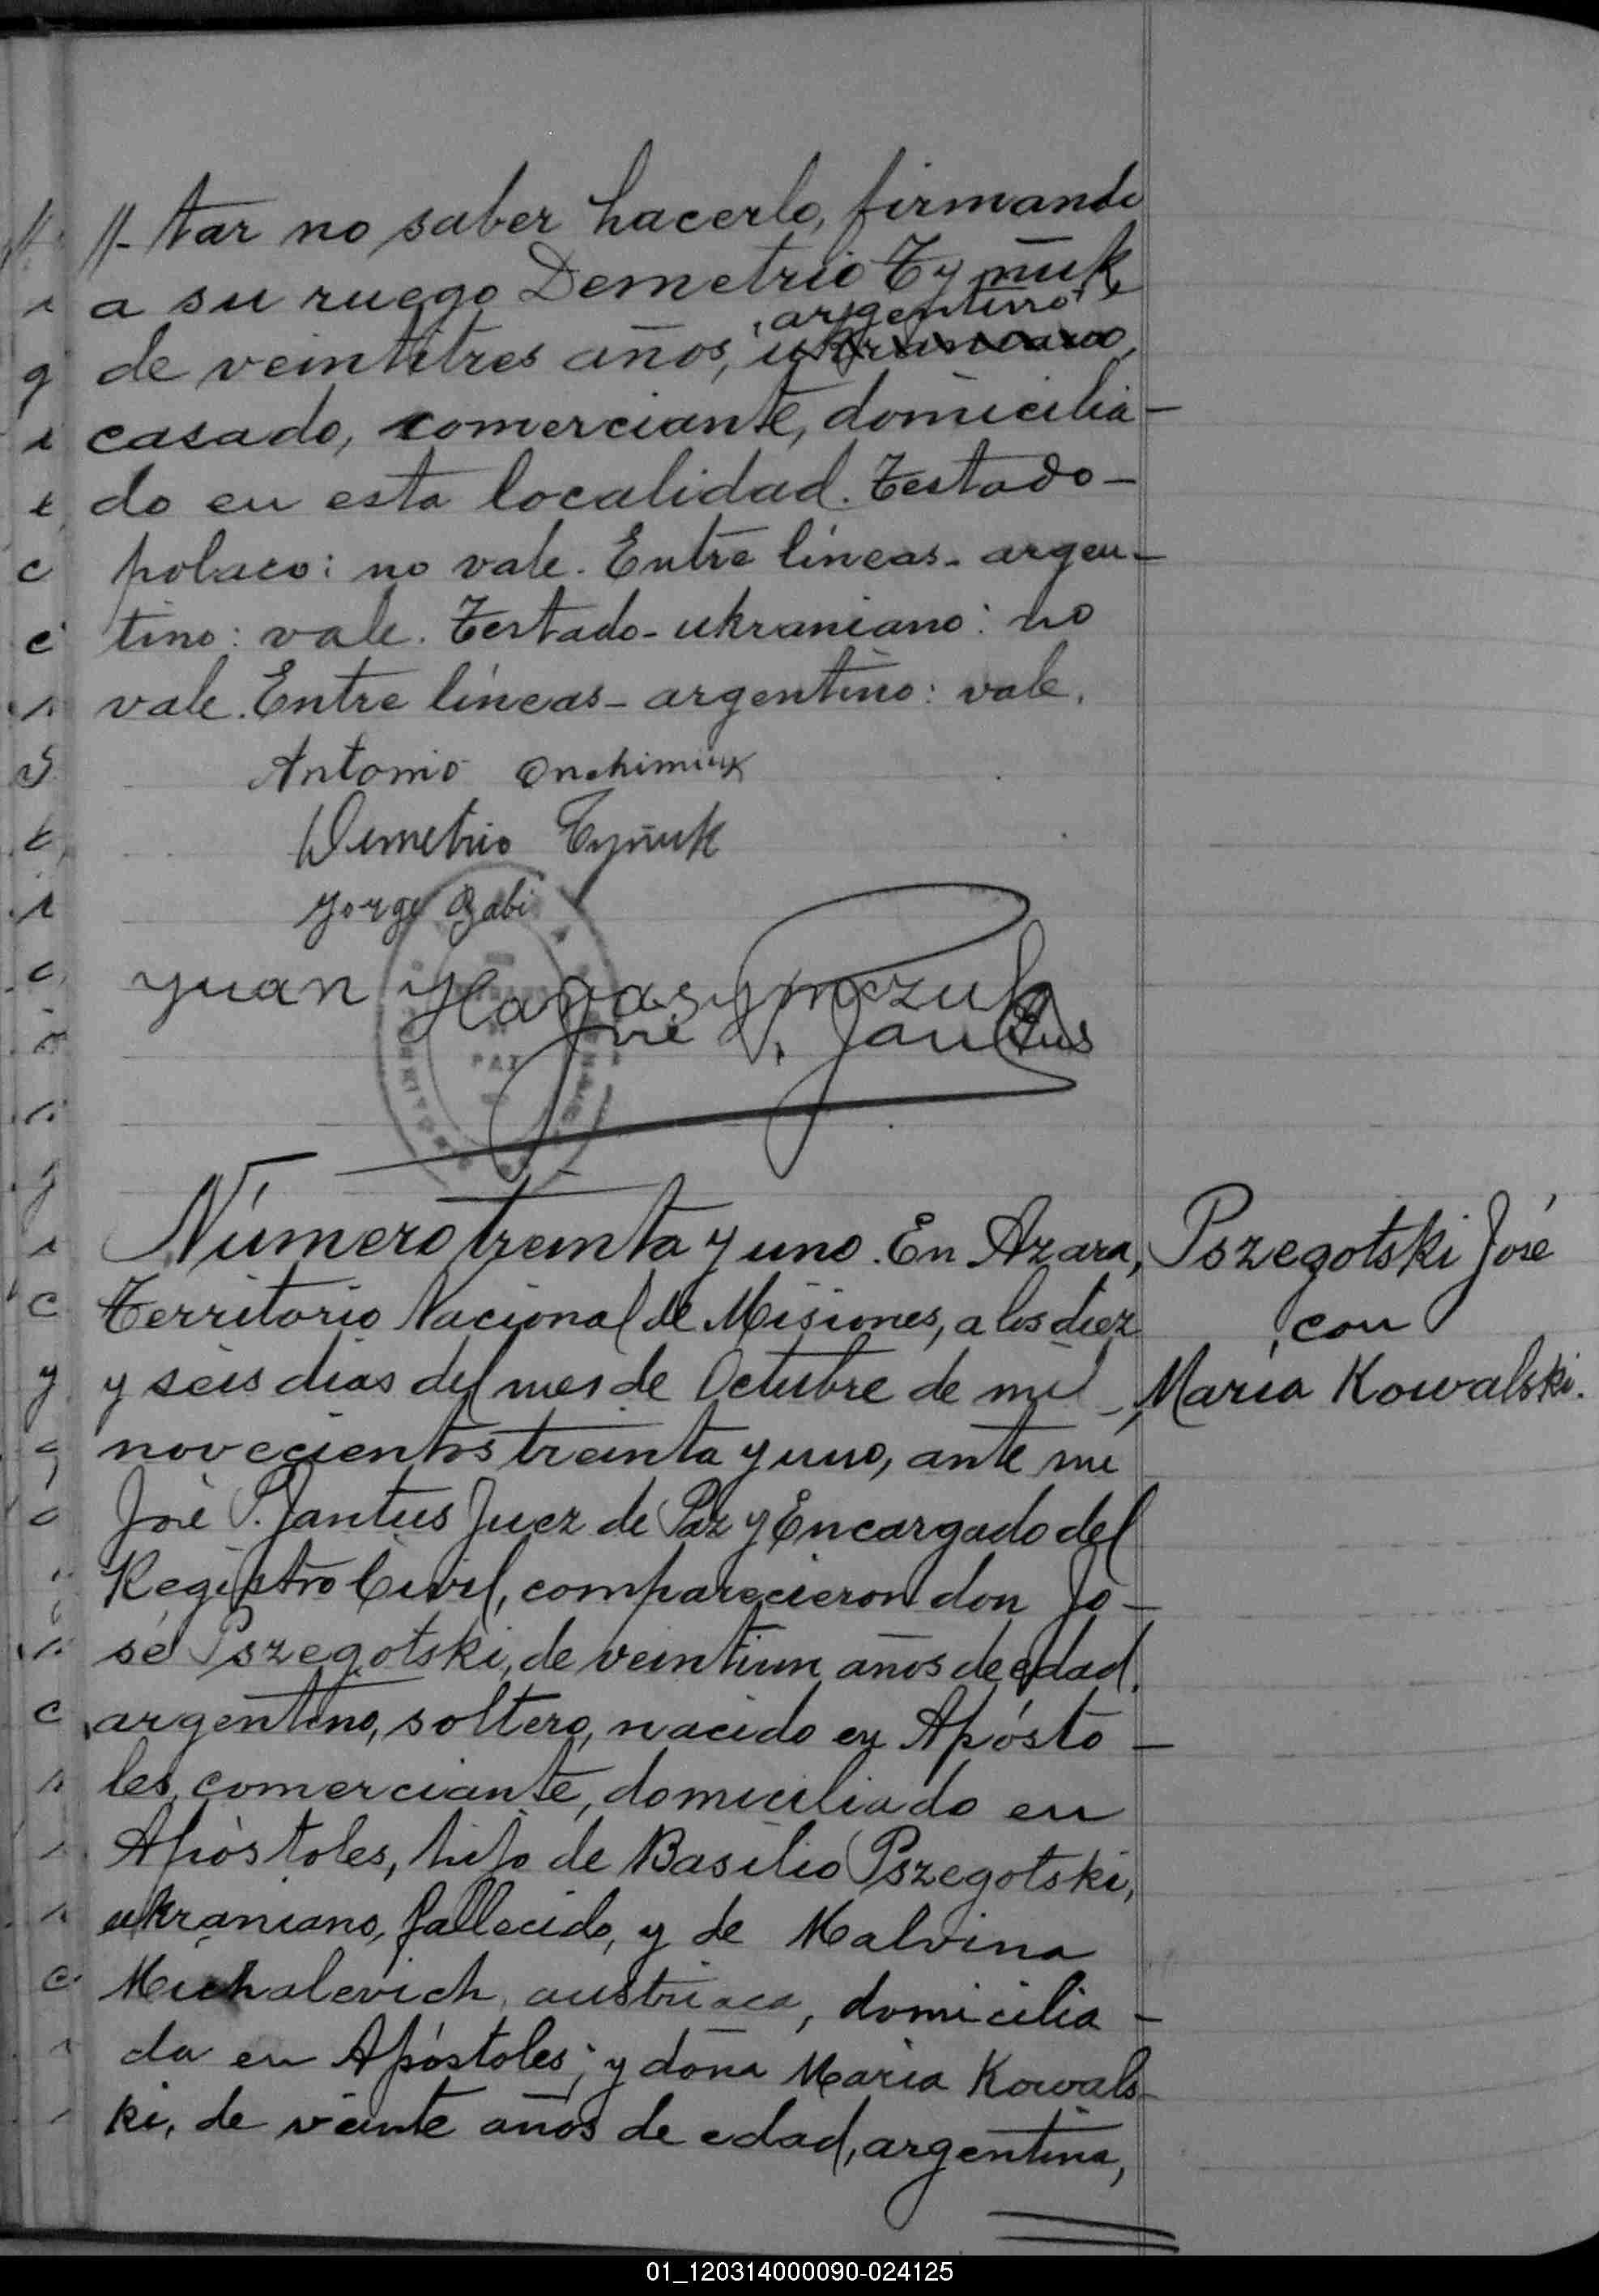 //- tar no saber hacerlo, firmando
a su ruego Demetrio Tyñuk
argentino
de veintitres años, ukraniano,
casado, comerciante, domicilia-
do en esta localidad. Testado-
polaco: no vale. Entre líneas- argen-
tino: vale. Testado- ukraniano: no
vale. Entre líneas- argentino: vale.
Antonio
Demetrio Tyñuk
Jorge
Yuan Harasymczuk
José P. Jantus
PAZ
Número treinta y uno. En Azara,
Territorio Nacional de Misiones, a los diez
y seis días del mes de Octubre de mil
novecientos treinta y uno, ante mi
José P. Jantus Juez de Paz y Encargado del
Registro Civil, comparecieron don Jo-
sé Pszegotski, de veintiun años de edad,
argentino, soltero, nacido en Apósto-
les, comerciante, domiciliado en
Apóstoles, hijo de Basilio Pszegotski,
ukraniano, fallecido, y de Malvina
Michalevich, austriaca, domicilia-
da en Apóstoles; y doña María Kowals-
ki, de veinte años de edad, argentina,
Pszegotski José
con
María Kowalski.
01_120314000090-024125